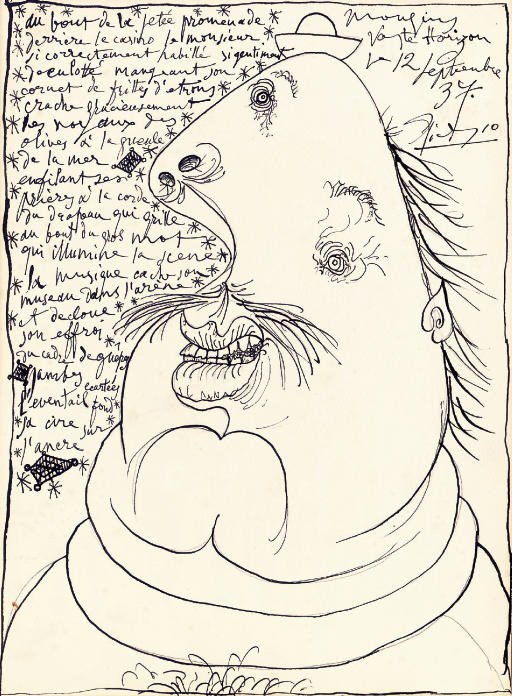 au bout de la jetée promenade
derrière le casino le monsieur
si correctement habillé si gentiment
deculotté mangeant son
cornet de frittes d'etrons
crache gracieusement
les noyaux des
olives à la gueule
de la mer
enfilant ses
prières à la corde
du drapeau qui grille
au bout du gros mot
qui illumine la scene
la musique cache son
museau dans l'arène
et decloue
son effroi
du cadre de guepes
jambes ecartées
l'eventail fond
sa cire sur
l'ancre
Mougins
Vaste Horizon
12 septembre
37.
Picasso